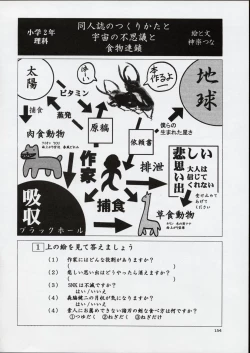 小学2年
理科
同人誌のつくりかたと
宇宙の不思議と
食物連鎖
絵と文
神奈つな
太陽
本作るよー
地球
ビタミン
捕食
蒸発
原稿
依頼書
僕らの
生まれた星さ
肉食動物
作家
排泄
悲しい思い出
大人は
信じて
くれない
吸収
ブラックホール
捕食
草食動物
1 上の絵を見て答えましょう
(1) 作家にはどんな役割がありますか?
(2) 悲しい思い出はどうやったら消えますか?
(3) SMKは不滅ですか?
はい/いいえ
(4) 森脇健二の月収が気になりますか?
はい/いいえ
①つゆだく ②ねぎだく ③ねぎだけ
154